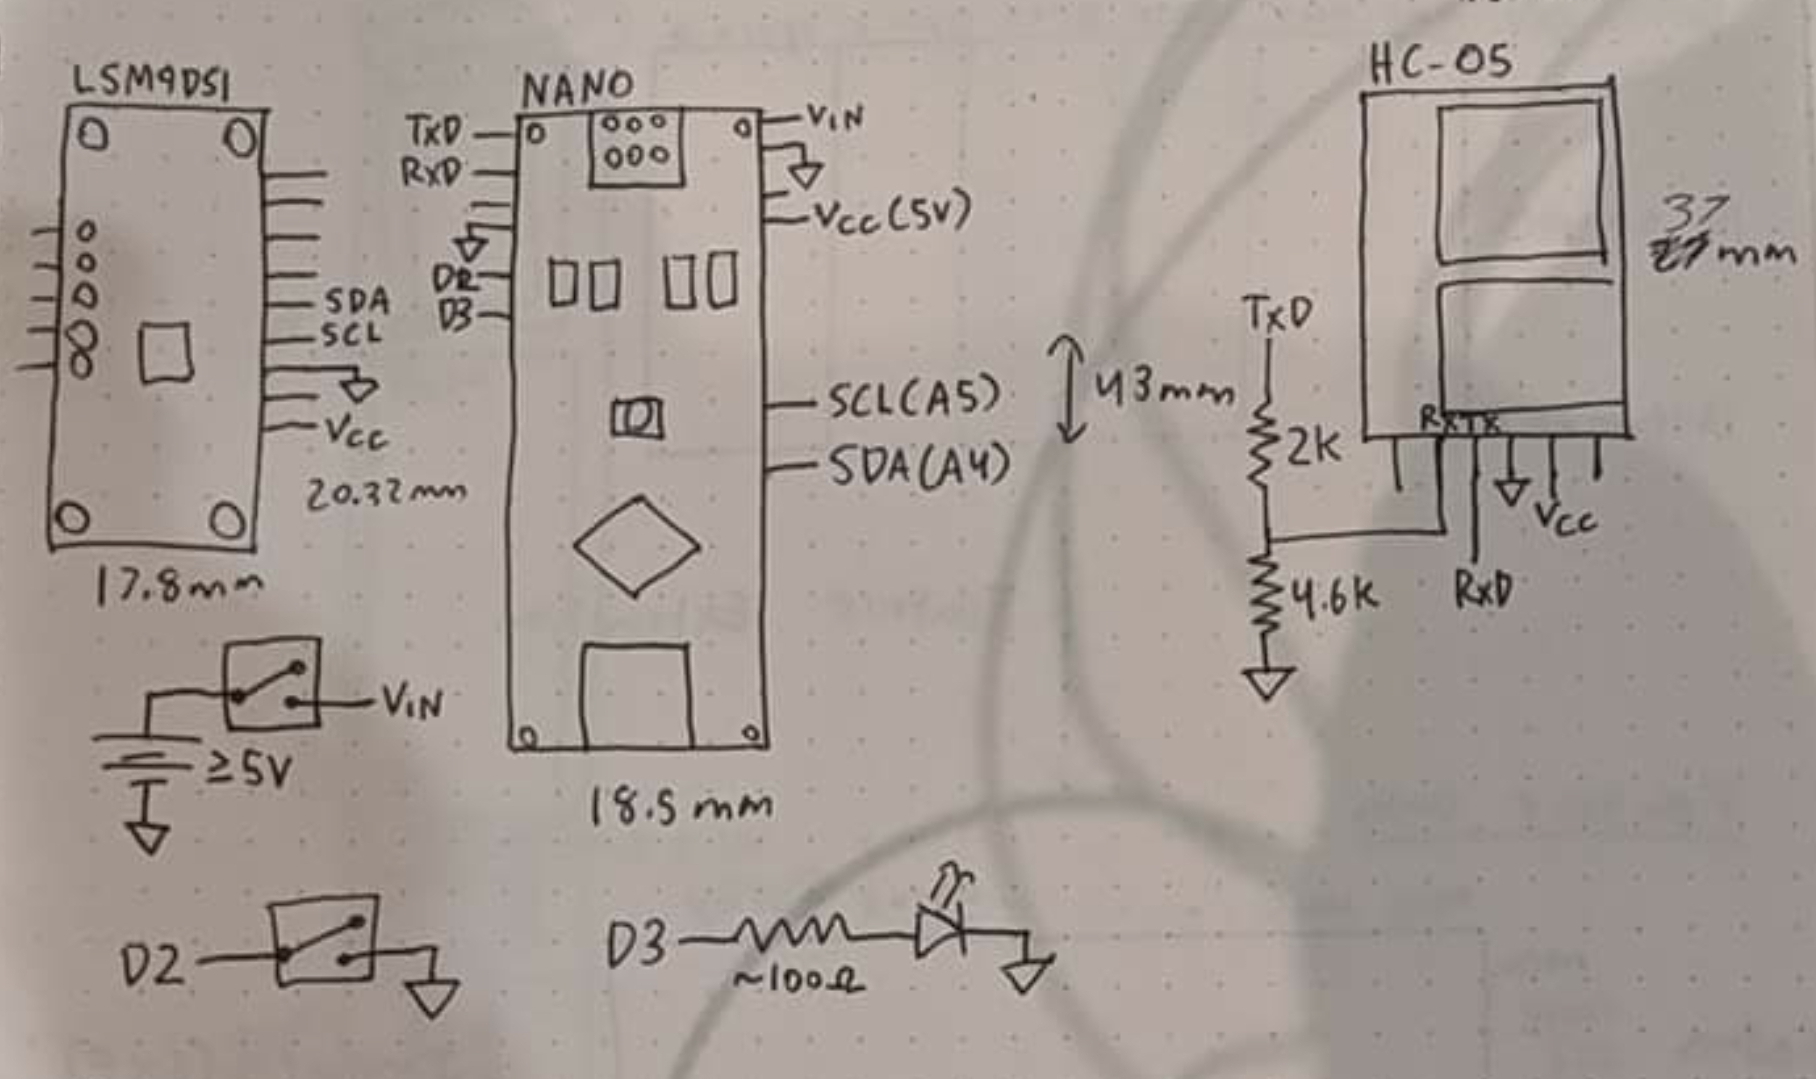 LSM9DS1
SDA
SCL
Vcc
20.32mm
17.8mm
NANO
TxD
RxD
D2
D3
VIN
Vcc(5V)
SCL(A5)
SDA(A4)
43mm
18.5mm
HC-05
37mm
RXTX
TxD
2K
4.6K
RxD
Vcc
VIN
≥5V
D2
D3
~100Ω